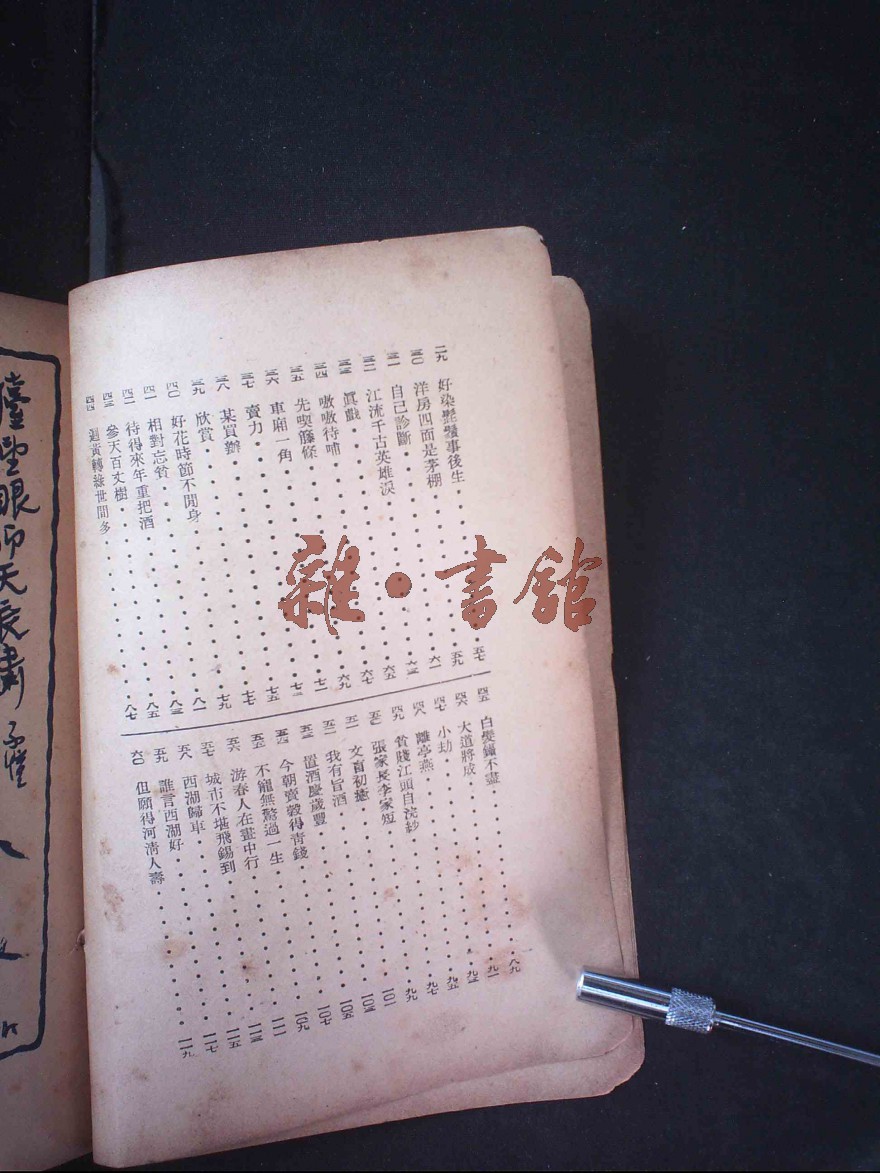 二九 好染髭鬚事後生 五七
三〇 洋房四面是茅棚 五九
三一 自己診斷 六一
三二 江流千古英雄淚 六三
三三 眞戲 六五
三四 嗷嗷待哺 六七
三五 先喫籐條 六九
三六 車廂一角 七一
三七 賣力 七三
三八 某買辦 七五
三九 欣賞 七七
四〇 好花時節不閒身 七九
四一 相對忘貧 八一
四二 待得來年重把酒 八三
四三 參天百丈樹 八五
四四 迴黃轉綠世間多 八七
四五 白髮鑷不盡 八九
四六 大道將成 九一
四七 小劫 九三
四八 離亭燕 九五
四九 貧賤江頭自浣紗 九七
五〇 張家長李家短 九九
五一 文盲初癒 一〇一
五二 我有旨酒 一〇三
五三 置酒慶歲豐 一〇五
五四 今朝賣穀得靑錢 一〇七
五五 不寵無驚過一生 一〇九
五六 游春人在畫中行 一一一
五七 城市不堪飛錫到 一一三
五八 西湖歸車 一一五
五九 誰言西湖好 一一七
六〇 但願得河淸人壽 一一九
眼仰天長嘯 子愷
雜·書館